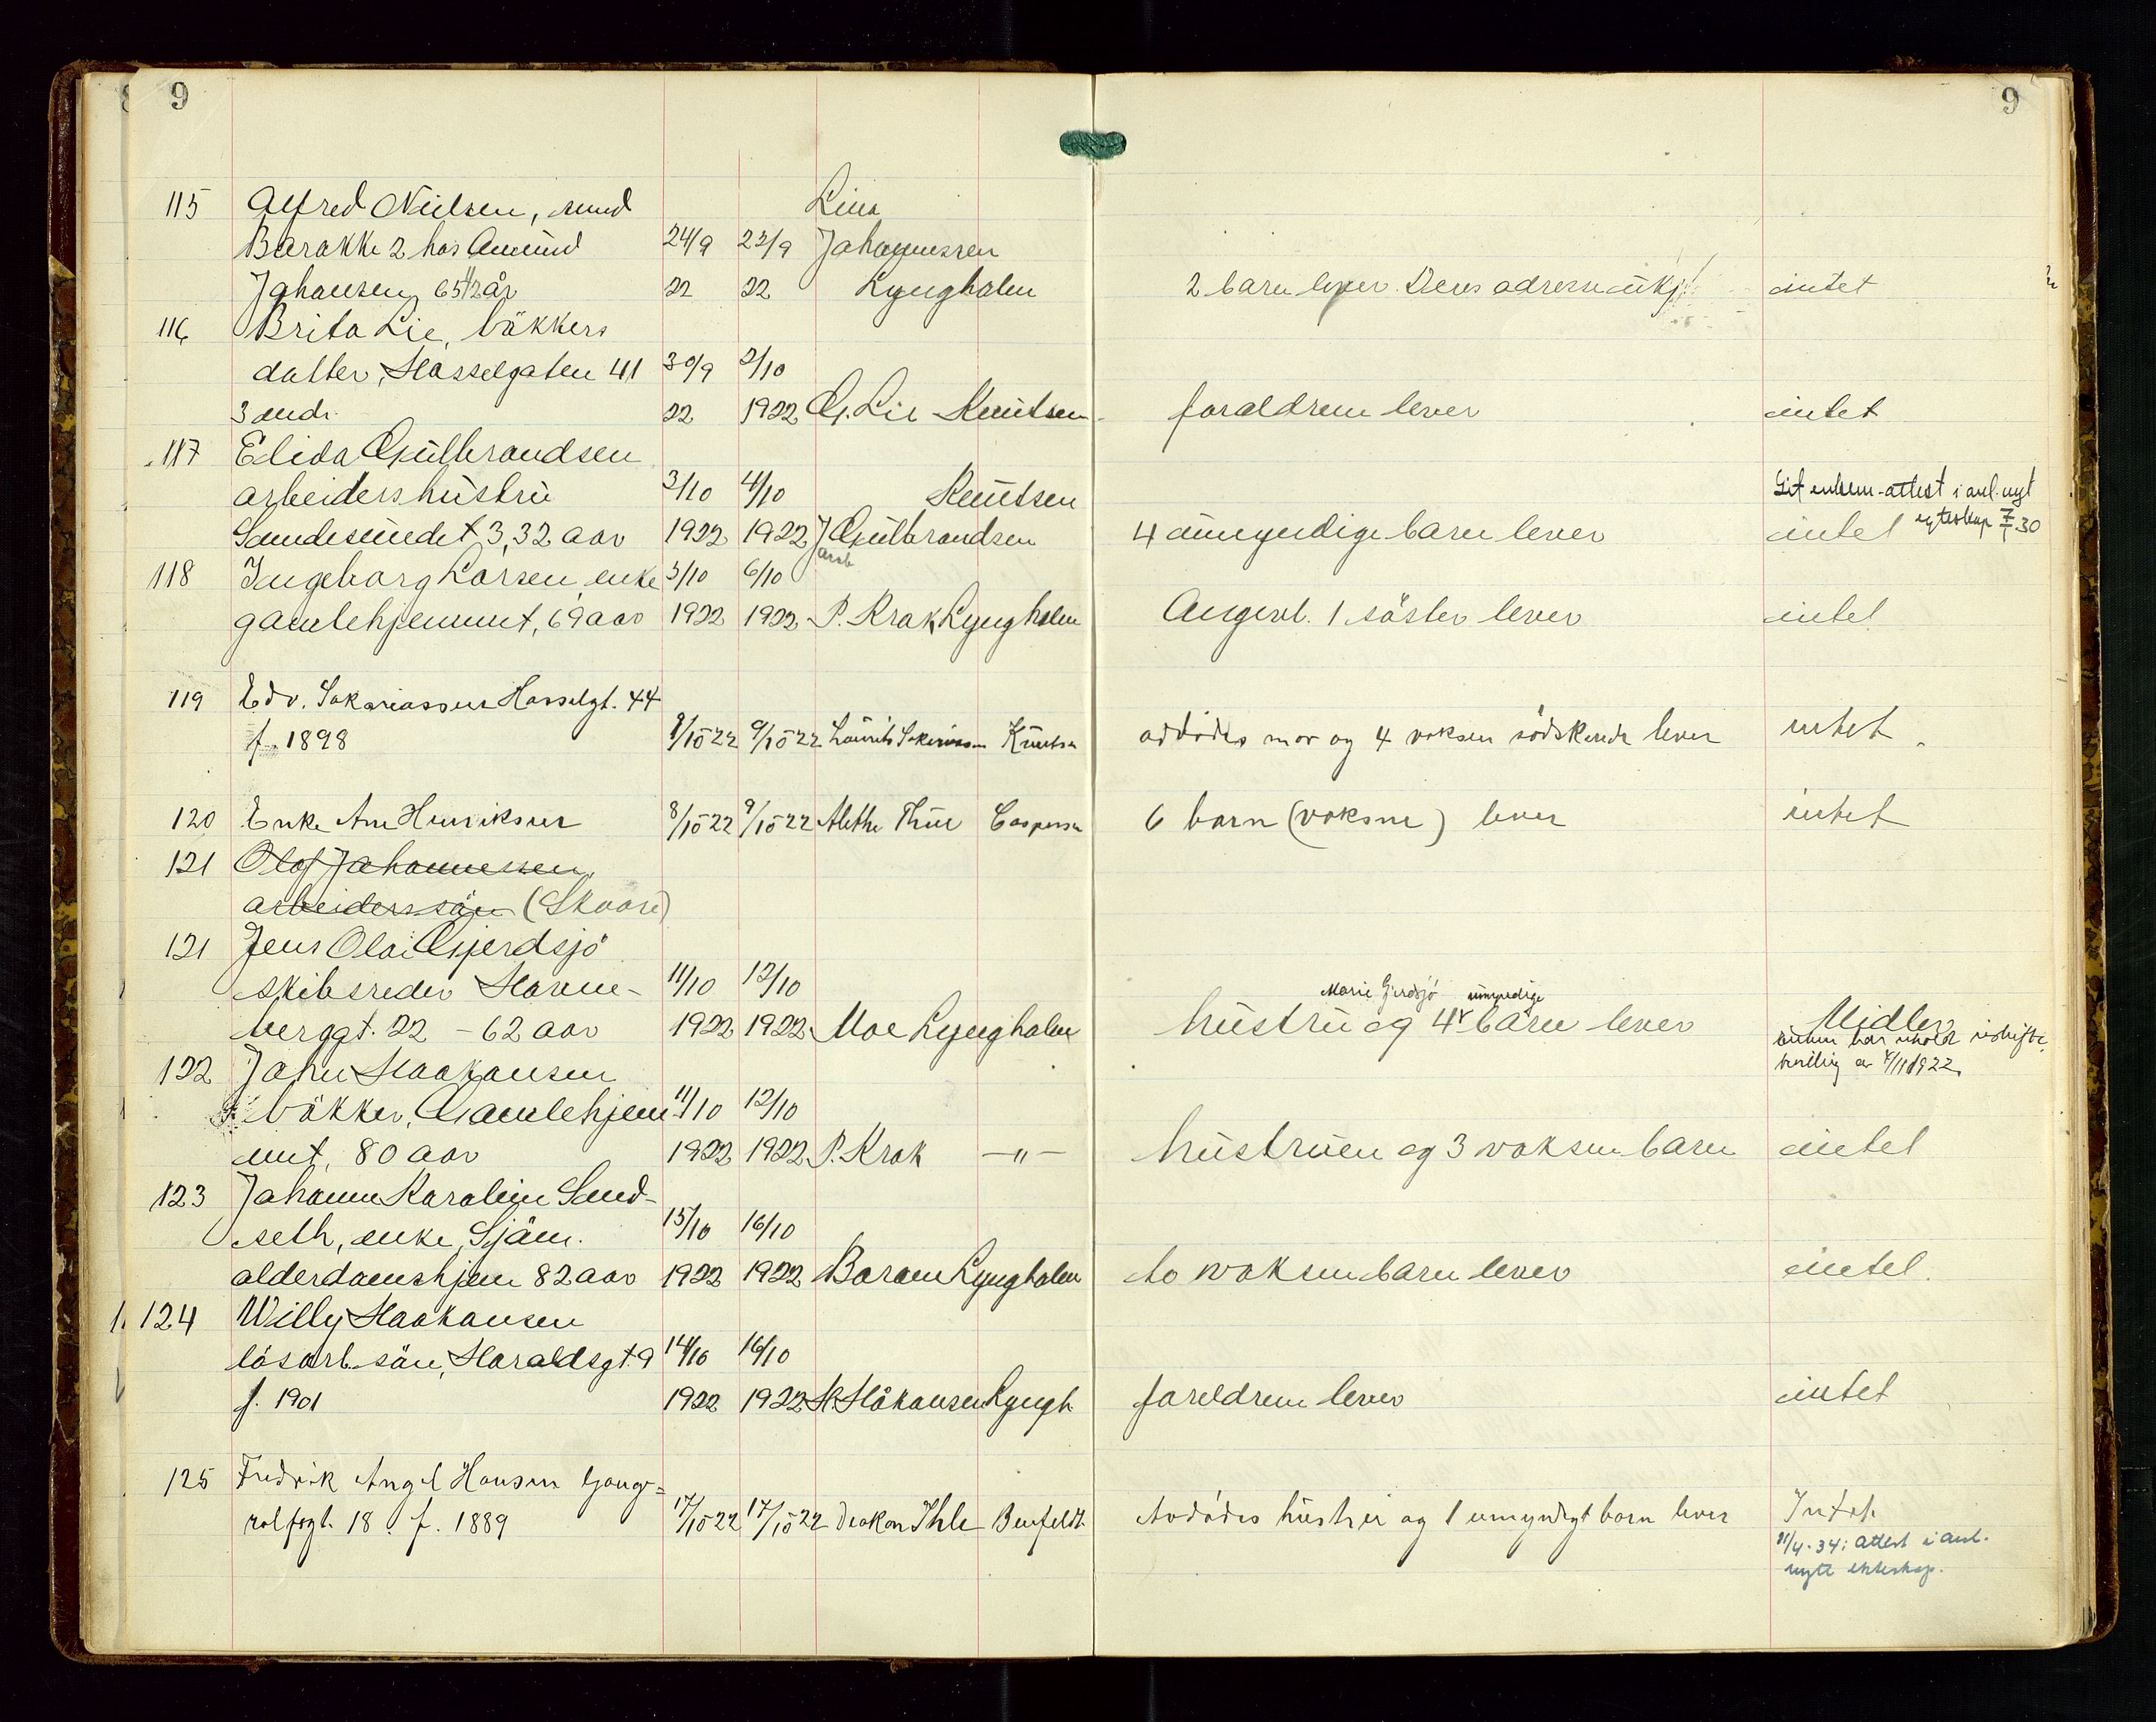 9 9
115 Alfred Nielsen, Lina
Barakke 2 hos Amund 24/9 23/9 Johannessen
Johansen, 65 1/2 år 22 22 Lyngholm 2 barn lever. Deres adresse intet
116 Brita Lie, bäkkers
datter, Hasselgaten 41 30/9 2/10
3 mdr. 22 1922 G. Lie Knutsen foraldrene lever intet
117 Elida Gulbrandsen
arbeiders hustru 3/10 4/10 Knutsen attest i anl. nyt
Sundesundet 3, 32 aar 1922 1922 J Gulbrandsen 4 umyndige barn lever intet egteskap 30
arb
118 Ingeborg Larsen, enke 5/10 6/10
gamlehjemmet, 69 aar 1922 1922 P. Krak Lyngholm Angivl. 1 søster lever intet
119 Edv. Sakariassen Hasselgt. 44
f. 1898 8/10 22 9/10 22 Laurits Sakariassen Knutsen avdødes mor og 4 voksne södskende lever intet
120 Enke Ane Henriksen 8/10 22 9/10 22 Alethe Thue Caspersen 6 barn (voksne) lever intet
121 Olaf Johannessen,
arbeiders sön (Skaare)
121 Jens Olai Gjerdsjö
skibsreder Havne- 11/10 12/10 Marie Gjerdsjö umyndige
berggt. 22 - 62 aar 1922 1922 Moe Lyngholm hustru og 4 barn lever Midler
enken har uskifte
122 John Haakonsen bevilling av 4/11 1922
bäkker, Gamlehjem- 11/10 12/10
met, 80 aar 1922 1922 P. Krak -"- hustruen og 3 voksne barn intet
123 Johanne Karoline Sand-
seth, enke, Sjöm. 15/10 16/10
alderdomshjem 82 aar 1922 1922 Baram Lyngholm to voksne barn lever intet.
124 Willy Haakonsen
lösarb. sön, Haraldsgt. 9 14/10 16/10
f. 1901 1922 1922 H. Håkonsen Lyngh. foreldrene lever intet
125 Fredrik Angel Hansen Gang-
rolfsgt. 18. f. 1889 17/10 22 17/10 22 Diakon Ihle Benfeldt Avdödes hustru og 1 umyndigt barn lever Intet.
11/4-34: attest i anl.
nytt ekteskap.